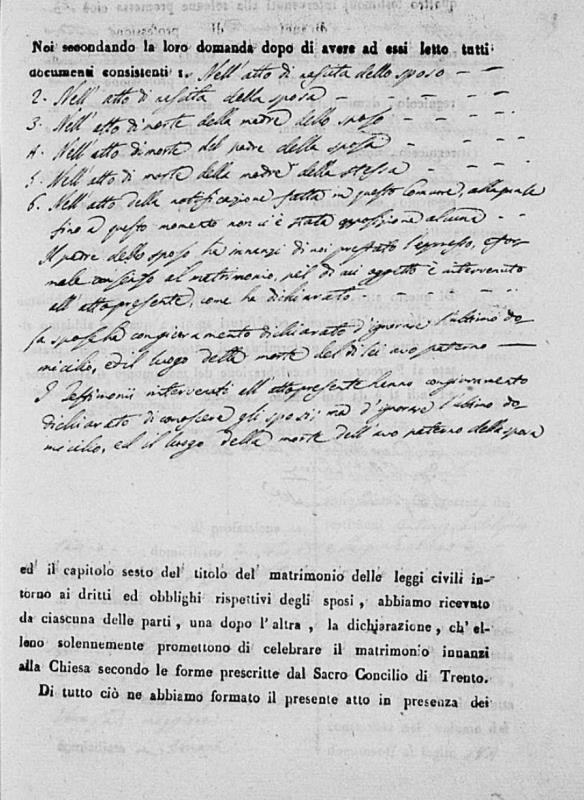 Noi secondando la loro domanda dopo di avere ad essi letto tutti
documenti consistenti 1. Nell'atto di nascita dello sposo
2. Nell'atto di nascita della sposa
3. Nell'atto di morte della madre dello sposo
4. Nell'atto di morte del padre della sposa
5. Nell'atto di morte della madre della stessa
6. Nell'atto della notificazione fatta in questo Comune, alla quale
fino a questo momento non vi è stata opposizione alcuna
Il padre dello sposo ha innanzi di noi prestato l'espresso, e for
male consenso al matrimonio, pel di cui oggetto è intervenuto
all'atto presente, come ha dichiarato.
La sposa ha con giuramento dichiarato d'ignorare l'ultimo do
micilio, ed il luogo della morte del di lei avo paterno
I Testimonii intervenuti all'atto presente hanno con giuramento
dichiarato di conoscere gli sposi; ma d'ignorare l'ultimo do
micilio, ed il luogo della morte dell'avo paterno della sposa
ed il capitolo sesto del titolo del matrimonio delle leggi civili in-
torno ai dritti ed obblighi rispettivi degli sposi, abbiamo ricevuto
da ciascuna delle parti, una dopo l'altra, la dichiarazione, ch'el-
leno solennemente promettono di celebrare il matrimonio innanzi
alla Chiesa secondo le forme prescritte dal Sacro Concilio di Trento.
Di tutto ciò ne abbiamo formato il presente atto in presenza dei